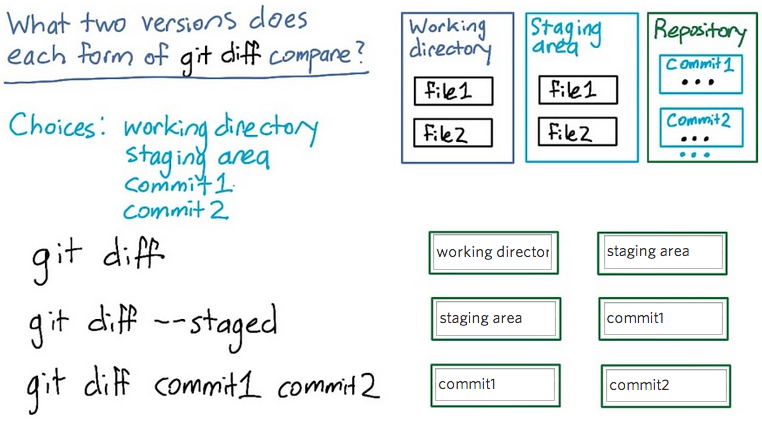 What two versions does
each form of git diff compare?
Choices: working directory
staging area
commit1
commit2
Working
directory
file1
file2
Staging
area
file1
file2
Repository
Commit1
...
Commit2
...
...
git diff
working director
staging area
git diff --staged
staging area
commit1
git diff commit1 commit2
commit1
commit2